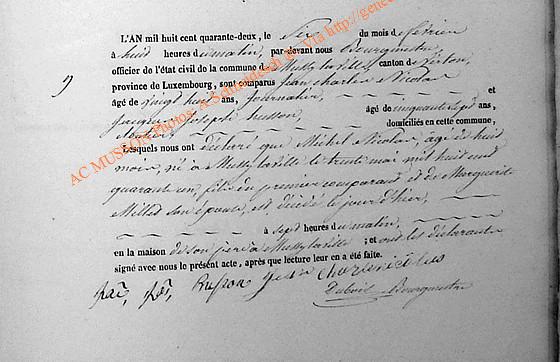 L'AN mil huit cent quarante-deux, le 1er du mois de février
à huit heures du matin, par-devant nous Bourgmestre,
officier de l'état civil de la commune de Mussy la ville, canton de Virton,
province de Luxembourg, sont comparus Jean Charles Nicolas
9
âgé de vingt huit ans, journalier, et
Jacques Joseph husson, âgé de cinquante sept ans,
domiciliés en cette commune,
Lesquels nous ont déclaré que Michel Nicolas, âgé de huit
mois, né à Mussy la ville le trente mai mil huit cent
quarante un, fils du premier comparant et de Marguerite
Millet son épouse, est décédé le jour d'hier,
à sept heures du matin,
en la maison de son père à Mussy la ville ; et ont les déclarants
signé avec nous le présent acte, après que lecture leur en a été faite.
husson jean charle nicolas
Bourgmestre
AC MUSSON Photos A Schmidtbach Via http://gene